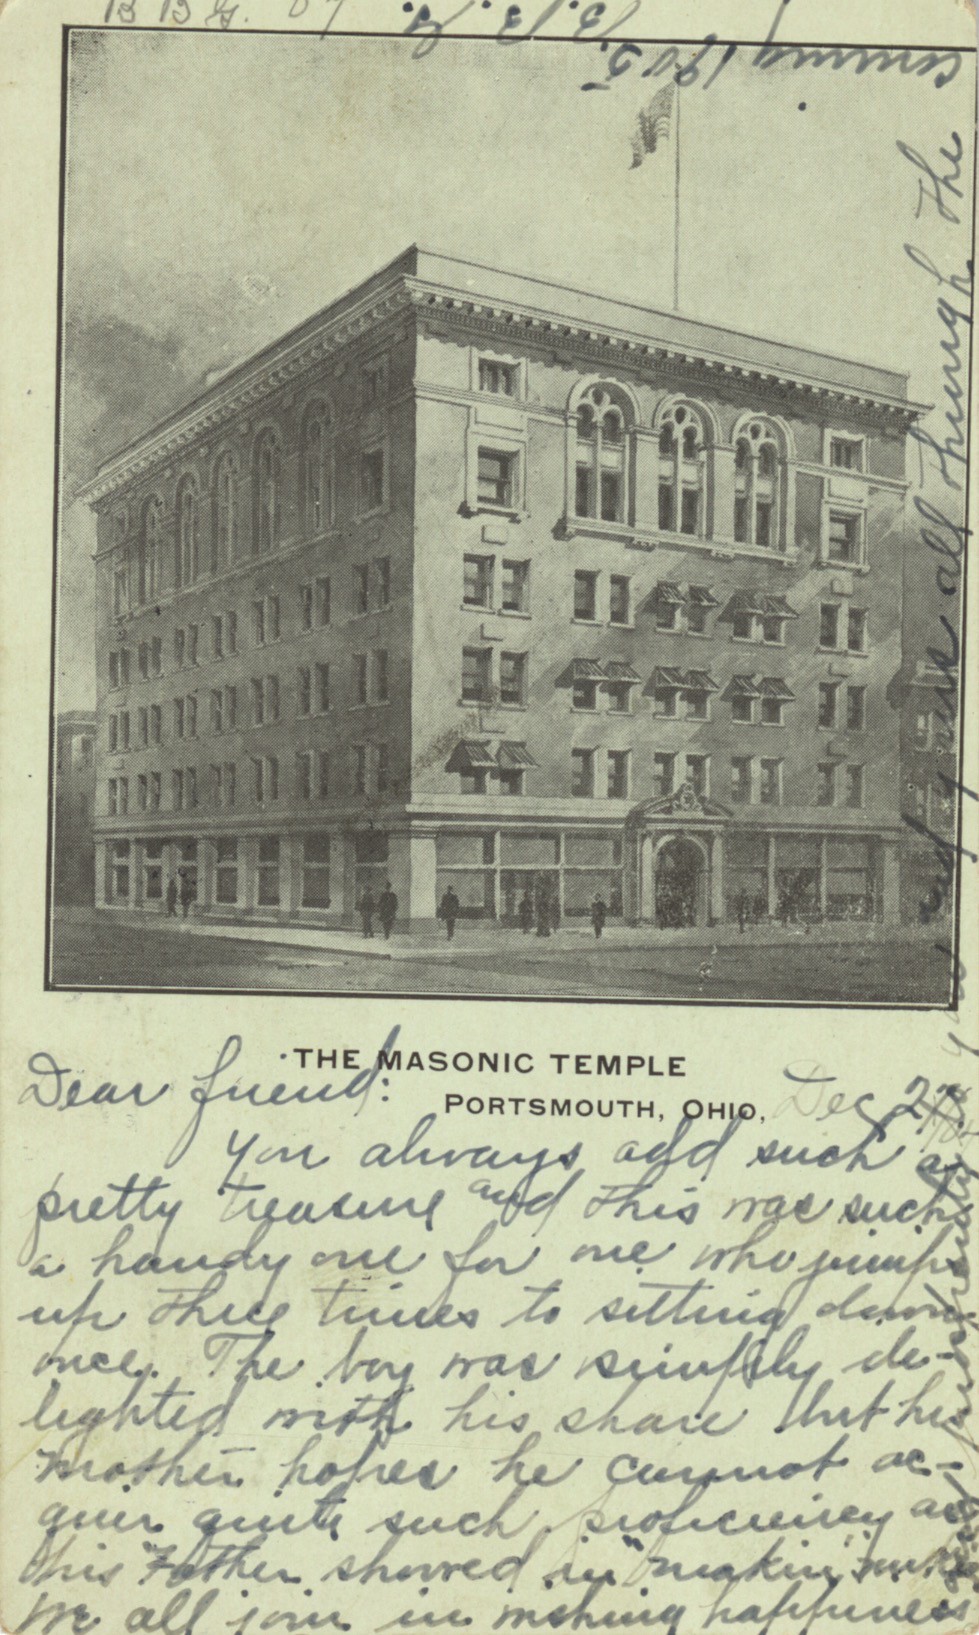 THE MASONIC TEMPLE
PORTSMOUTH, OHIO.
Dec 27
Dear friend:
You always add such a
pretty treasure and this was such
a handy one for one who jumps
up three times to sitting down
once. The boy was simply de-
lighted with his share but his
mother hopes he cannot ac-
quir quite such proficiency as
his Father showed in "makin'
We all join in wishing happiness
and prosperity
you and yours all through the
coming 1905
B. B. G.
B B G. 07